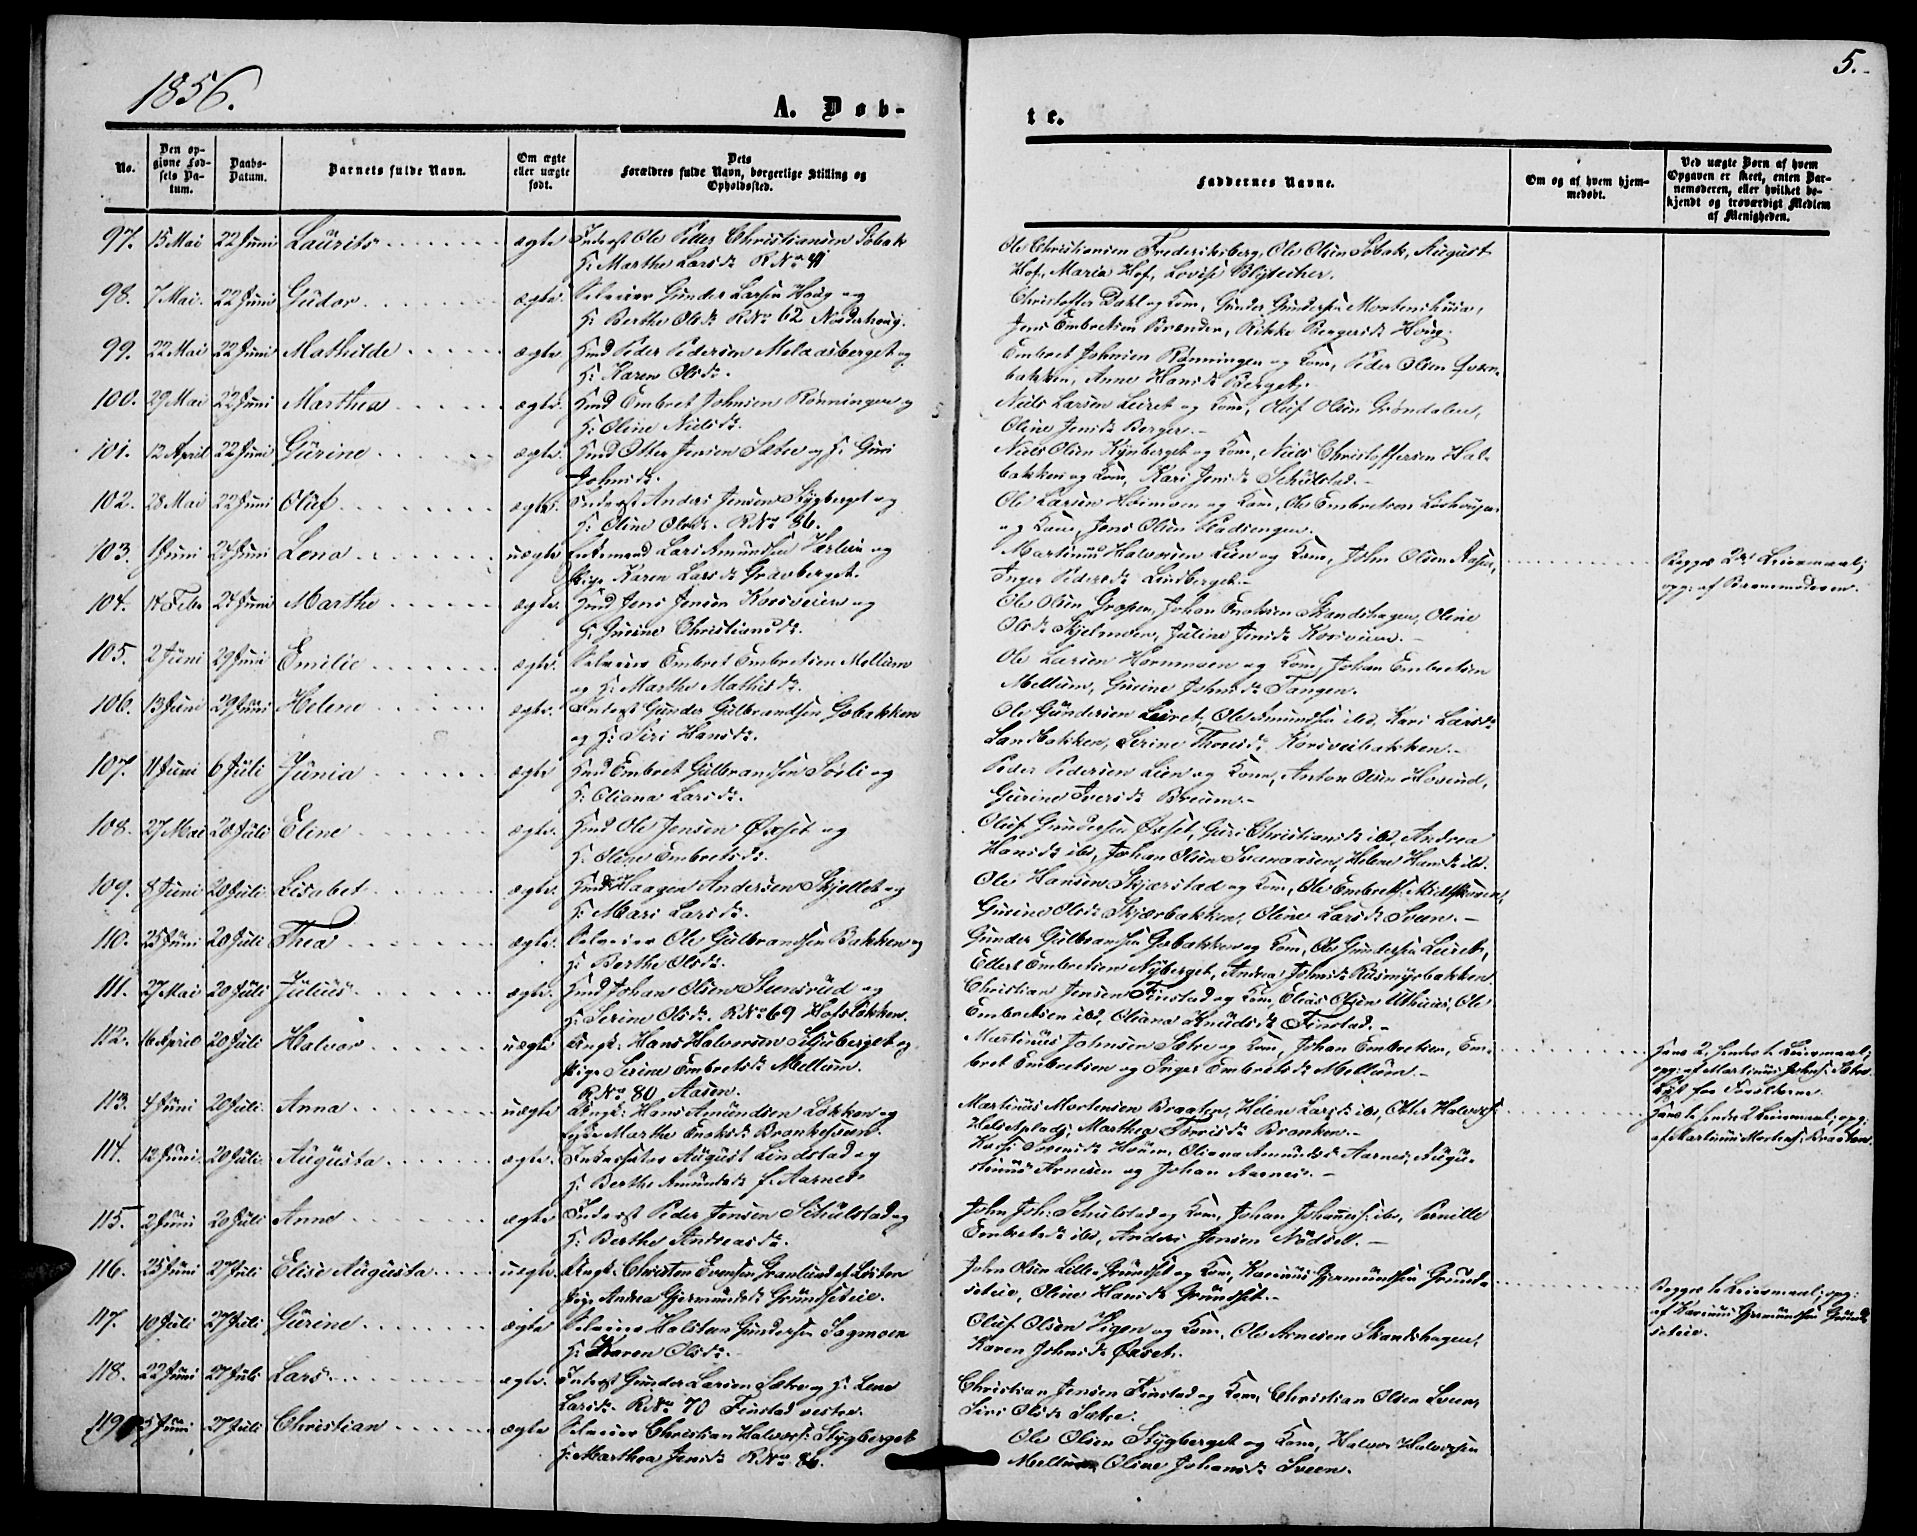 1856.
A. Døb-
te.
5.
No.
Den op-
givne Fød-
sels Da-
tum.
Daabs-
Datum.
Barnets fulde Navn.
Om ægte
eller uægte
født.
Dets
Forældres fulde Navn, borgerlige Stilling og
Opholdssted.
Faddernes Navne.
Om og af hvem hjem-
medøbt.
Ved uægte Børn af hvem
Opgaven er skeet, enten Bar-
nemoderen, eller hvilket be-
kjendt og troværdigt Medlem
af Menigheden.
97. 15 Mai 22 Juni Laurits ægte Inderst Ole Peder Christiansen Sobak
H: Marthe Larsd:
Ole Christiansen Frederiksberg, Ole Olsen Sobak, August
Hof, Maria Hof, Lovise Blytecher.
98. 7 Mai. 22 Juni Gudor ægte Selveier Gunder Larsen Haug og
H: Berthe Olsd: RNo 62 Nordhaug.
Christoffer Dahl og Kone, Gunder Gundersen Mortenshuus,
Jens Embretsen Brænder, Rikke Bergersd: Houg.
99. 22 Mai 22 Juni Mathilde ægte Hmd Peder Pedersen Melaasberget og
H: Karen Olsd:
Embret Johnsen Rønningen og Kone, Peder Olsen Qværn-
bakken, Anne Hansd: Berget.
100. 29 Mai 22 Juni Marthea ægte Hmd Embret Johnsen Rønningen og
H: Oline Nielsd:
Niels Larsen Leiret og Kone, Oluf Olsen Grøndalen,
Oline Jensd: Berger.
101. 12 April 22 Juni Gurine ægte Hmd Otter Jensen Sætre og H: Guri
Johnsd:
Niels Olsen Kynberget og Kone, Niels Christoffersen Hal-
bakken og Kone, Kari Jensd: Schulstad.
102. 28 Mai 22 Juni Oluf ægte Inderst Anders Jensen Stygberget og
H: Oline Olsd: RNo 86.
Ole Larsen Holmoen og Kone, Ole Embretsen
og Kone, Jens Olsen Kladsengen.
103. 1 Juni 24 Juni Lena uægte Lars Amundsen Herlien og
Pige Karen Larsd: Gravberget.
Martinus Halvorsen Lien og Kone, John Olsen Aasen,
Inger Pedersd: Lindberget.
Begges 2det Leiermaal;
opg: af Barnemoderen.
104. 14 Febr 24 Juni Marthe ægte Hmd Jens Jensen Korsveien og
H: Gurine Christiansd:
Ole Olsen Gropen, Johan Enoksen Skandshagen, Oline
Olsd: Skjelmoen, Juline Jensd: Korsveien.
105. 2 Juni 29 Juni Emilie ægte Selveier Embret Embretsen Mellum
og H: Marthe Mathisd:
Ole Larsen Hornmoen og Kone, Johan Embretsen
Mellum, Gurine Johnsd: Tangen.
106. 13 Juni 29 Juni Helene ægte Inderst Gunder Gulbrandsen Gobakken
og H: Siri Hansd:
Ole Gundersen Leiret, Ole Amundsen ibd, Kari Larsd:
Landbakken, Serine Thorsd: Korsveibakken.
107. 11 Juni 6 Juli Junia ægte Hmd Embret Gulbrandsen Sørli og
H: Oliana Larsd:
Peder Pedersen Lien og Kone, Anton Olsen Hovind,
Gurine Iversd: Breum.
108. 27 Mai 20 Juli Eline ægte Hmd Ole Jensen Øxset og
H: Oline Embretsd:
Oluf Gundersen Øxset, Guri Christiansd: ibd, Andrea
Hansd: ibd, Johan Olsen Svenaasen, Helene Hansd: ibd.
109. 8 Juni 20 Juli Lisabet ægte Hmd Haagen Andersen Skjellet og
H: Mari Larsd:
Ole Hansen Skjærstad og Kone, Ole Embrets: Midtskoven,
Gurine Olsd: Skjærbakken, Oline Larsd: Sveen.
110. 25 Juni 20 Juli Thea ægte Selveier Ole Gulbrandsen Bakken og
H: Berthe Olsd:
Gunder Gulbrandsen Gobakken og Kone, Ole Gundersen Leiret,
Ellert Embretsen Nyberget, Andrea Johnsd: Rusmyrbakken.
111. 27 Mai 20 Juli Julius ægte Hmd Johan Olsen Stensrud og
H: Serine Olsd: RNo 69 Hofsløkken.
Christian Jensen Finstad og Kone, Elias Olsen Uthuus, Ole
Embretsen ibd, Oliana Knudsd: Finstad.
112. 16 April 20 Juli Halvor uægte Ungk: Hans Halvorsen Stuberget og
Pige Serine Embretsd: Mellum.
RNo 80 Aasen.
Martinus Johnsen Sætre og Kone, Johan Embretsen, Em-
bret Embretsen og Inger Embretsd: Mellum.
Hans 2, hendes 1. Leiermaal;
opg: af Martinus Johns: Sætre
113. 4 Juni 20 Juli Anna uægte Ungk: Hans Amundsen Løkken og
Marthe Enoksd: Bronkesveen.
Martinus Mortensen Braaten, Helene Larsd: ibd, Otter Halvors:
Marthea Torrisd: Bronken.
Hans 1, hendes 2 Leiermaal; opg:
af Martinus Mortens: Braaten.
114. 12 Juni 20 Juli Augusta ægte August Lindstad og
H: Berthe Amundsd: f. Aarnes.
Oliana Amundsd: Aarnes, Augu-
stinus Arnesen og Johan Aarnes.
115. 2 Juni 20 Juli Anne ægte Inderst Peder Jensen Schulstad og
H: Berthe Andreasd:
John Joh: Schulstad og Kone, Johan Johannes: ibd, Pernille
Embretsd: ibd, Anders Jensen Nødsell.
116. 25 Juni 27 Juli Elise Augusta uægte Ungk: Christen Evensen Granlund af Løiten
Pige Andrea Gjermundsd: Grundseteie.
John Olsen Lille-Grundset og Kone, Karinus Gjermundsen Grund-
seteie, Oline Hansd: Grundset.
Begges 1. Leiermaal; opg:
af Karinus Gjermundsen Grund-
seteie.
117. 10 Juli 27 Juli Gurine ægte Selveier Halsten Gundersen Sagmoen
H: Karen Olsd:
Oluf Olsen Vigen og Kone, Ole Arnesen Skandshagen,
Karen Johnsd: Øxset.
118. 22 Juni 27 Juli Lars ægte Inderst Gunder Larsen Sætre og H: Lene
Larsd: RNo 70 Finstad vestre.
Christian Jensen Finstad og Kone, Christian Olsen Sveen,
Siri Olsd: Sætre.
119. 5 Juni 27 Juli Christian ægte Selveier Christian Halvors: Stygberget
H: Marthea Jensd: RNo 86.
Ole Olsen Stygberget og Kone, Halvor Halvorsen
Mellum, Oline Johansd: Sveen.